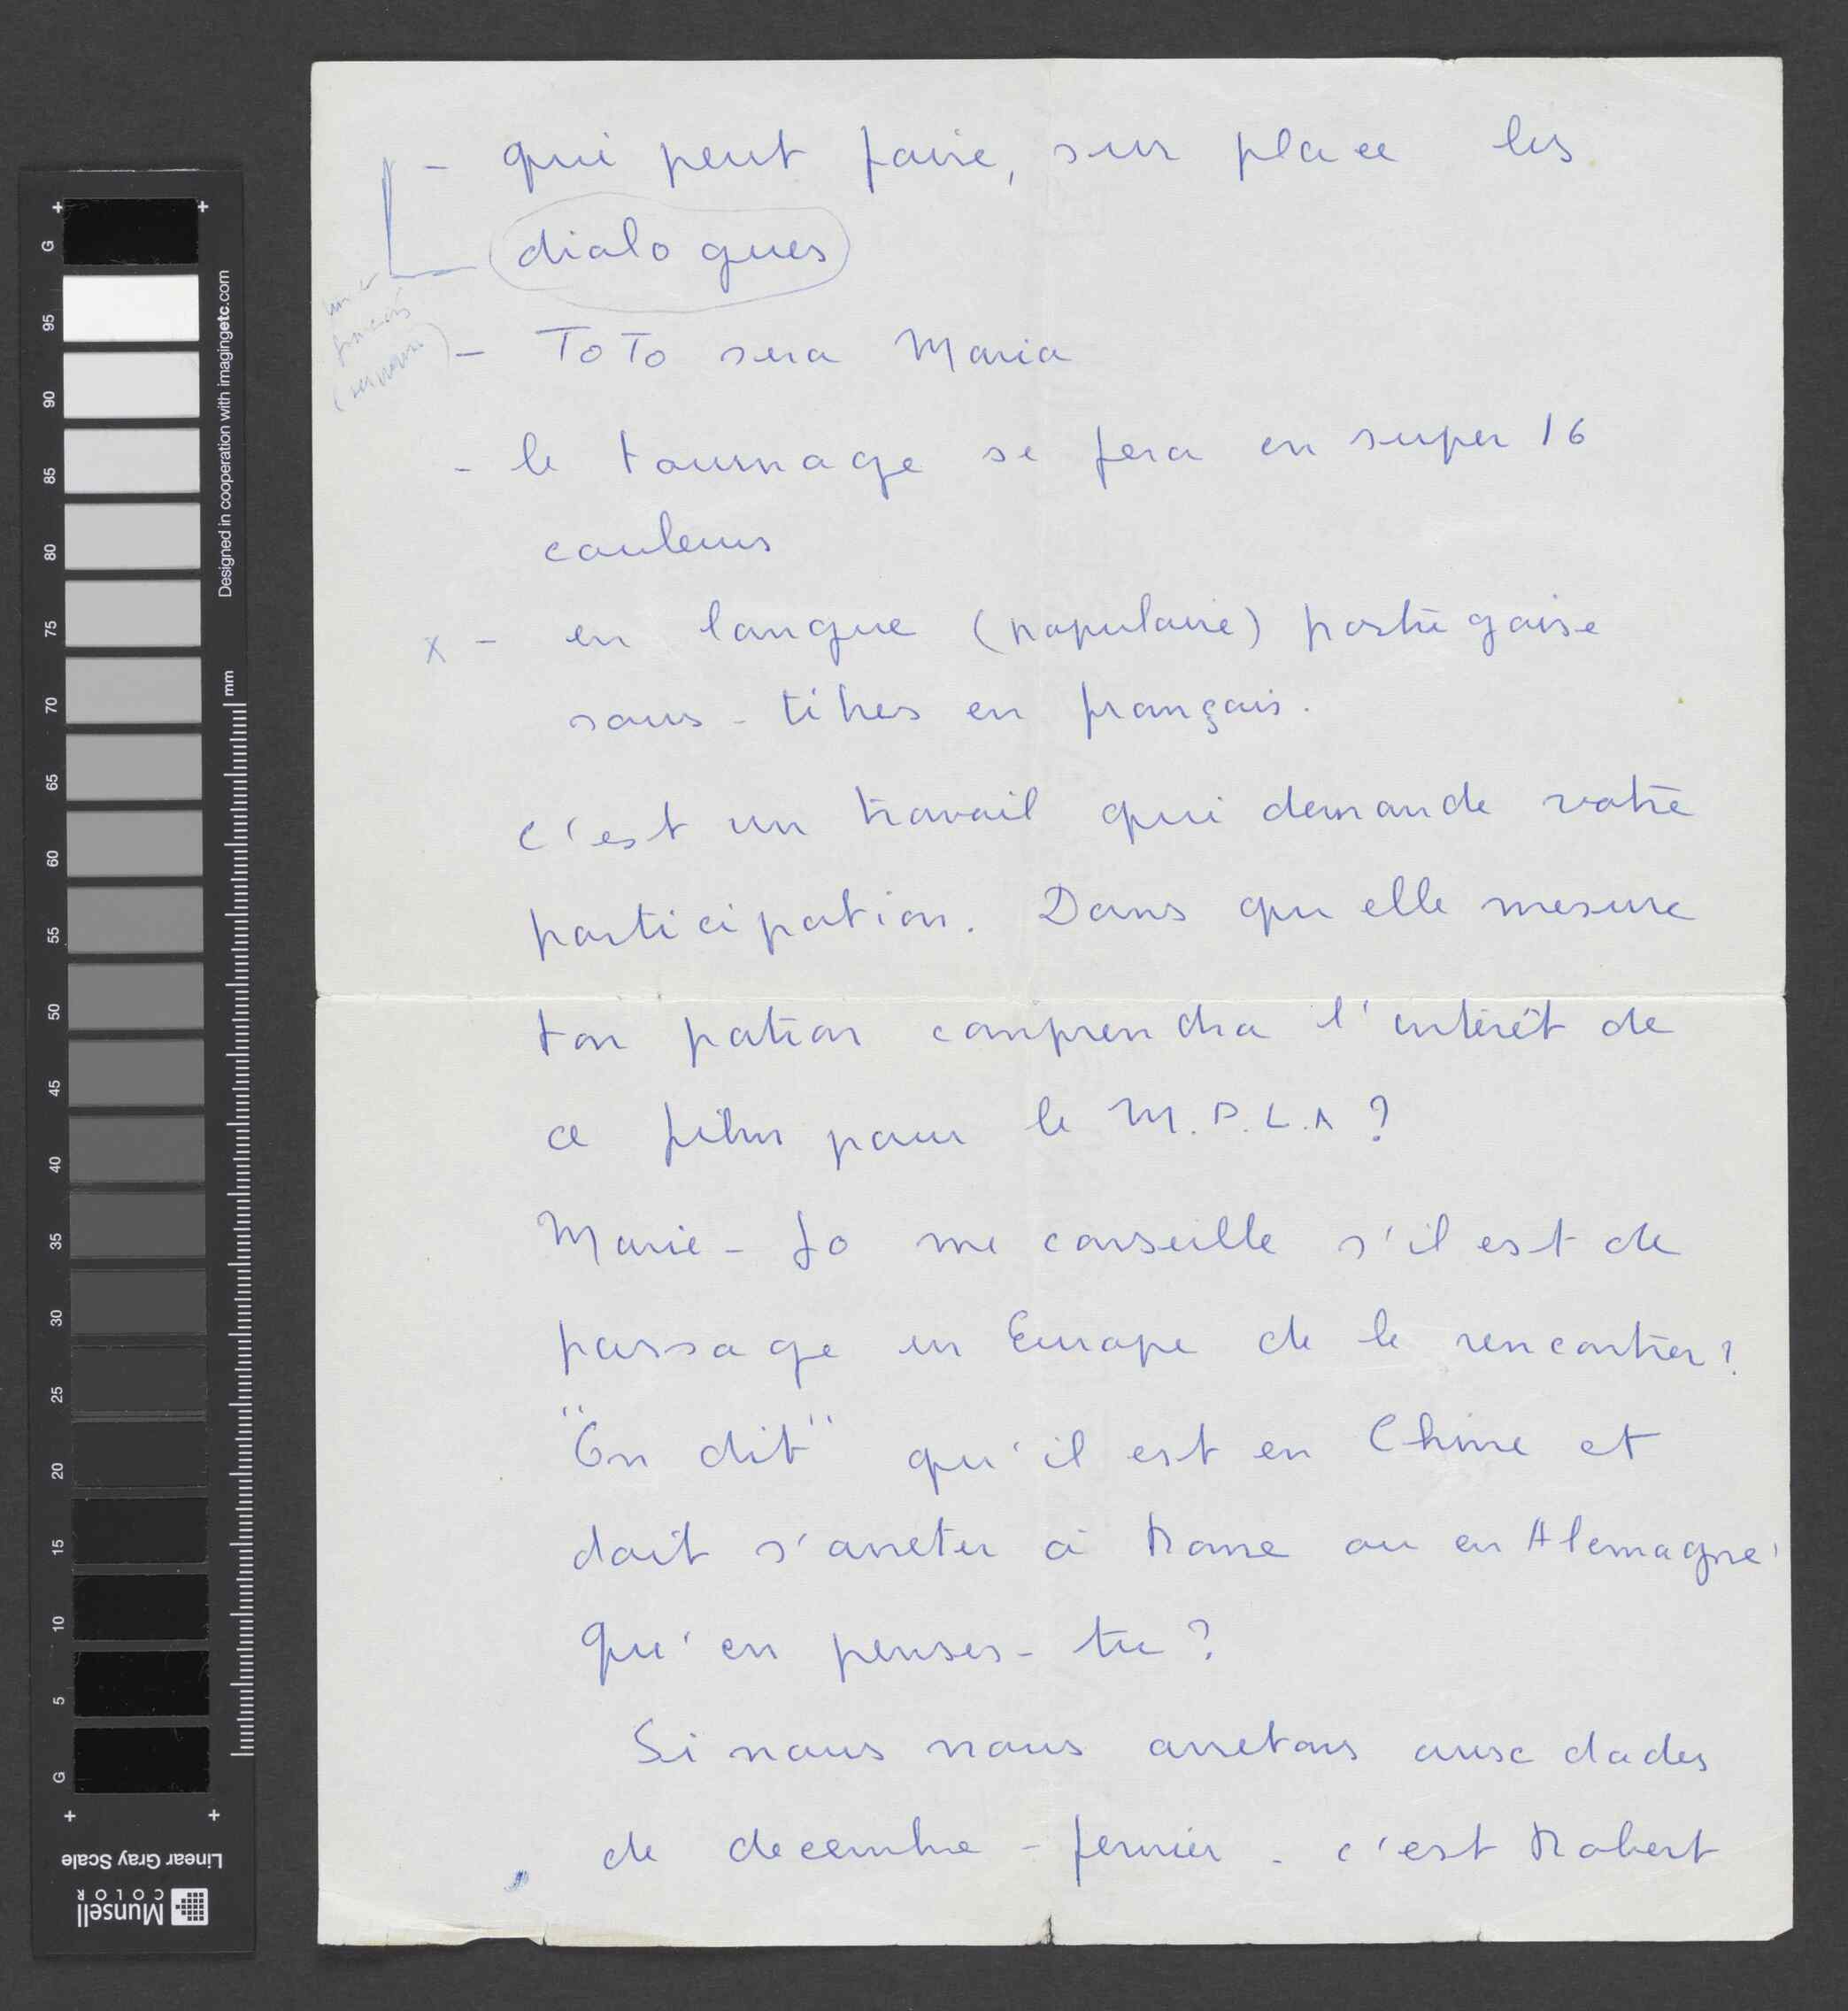 - qui peut faire, sur place les
dialogues
- ToTo sera Maria
- le tournage se fera en super 16
couleurs
x - en langue (populaire) portugaise
sous-titres en français.
c'est un travail qui demande votre
participation. Dans qu elle mesure
ton patron comprendra l'intérêt de
ce film pour le M.P.L.A ?
Marie-Jo me conseille s'il est de
passage en Europe de le rencontrer?
"On dit" qu'il est en Chine et
doit s'arreter à Rome ou en Alemagne!
Qu'en penses-tu ?
Si nous nous arretons aux dades
de decembre - fevrier - c'est Robert
G 95 90 85 80 75 70 65 60 55 50 45 40 35 30 25 20 15 10 5 G
Designed in cooperation with imagingetc.com
mm
Linear Gray Scale
Munsell
COLOR